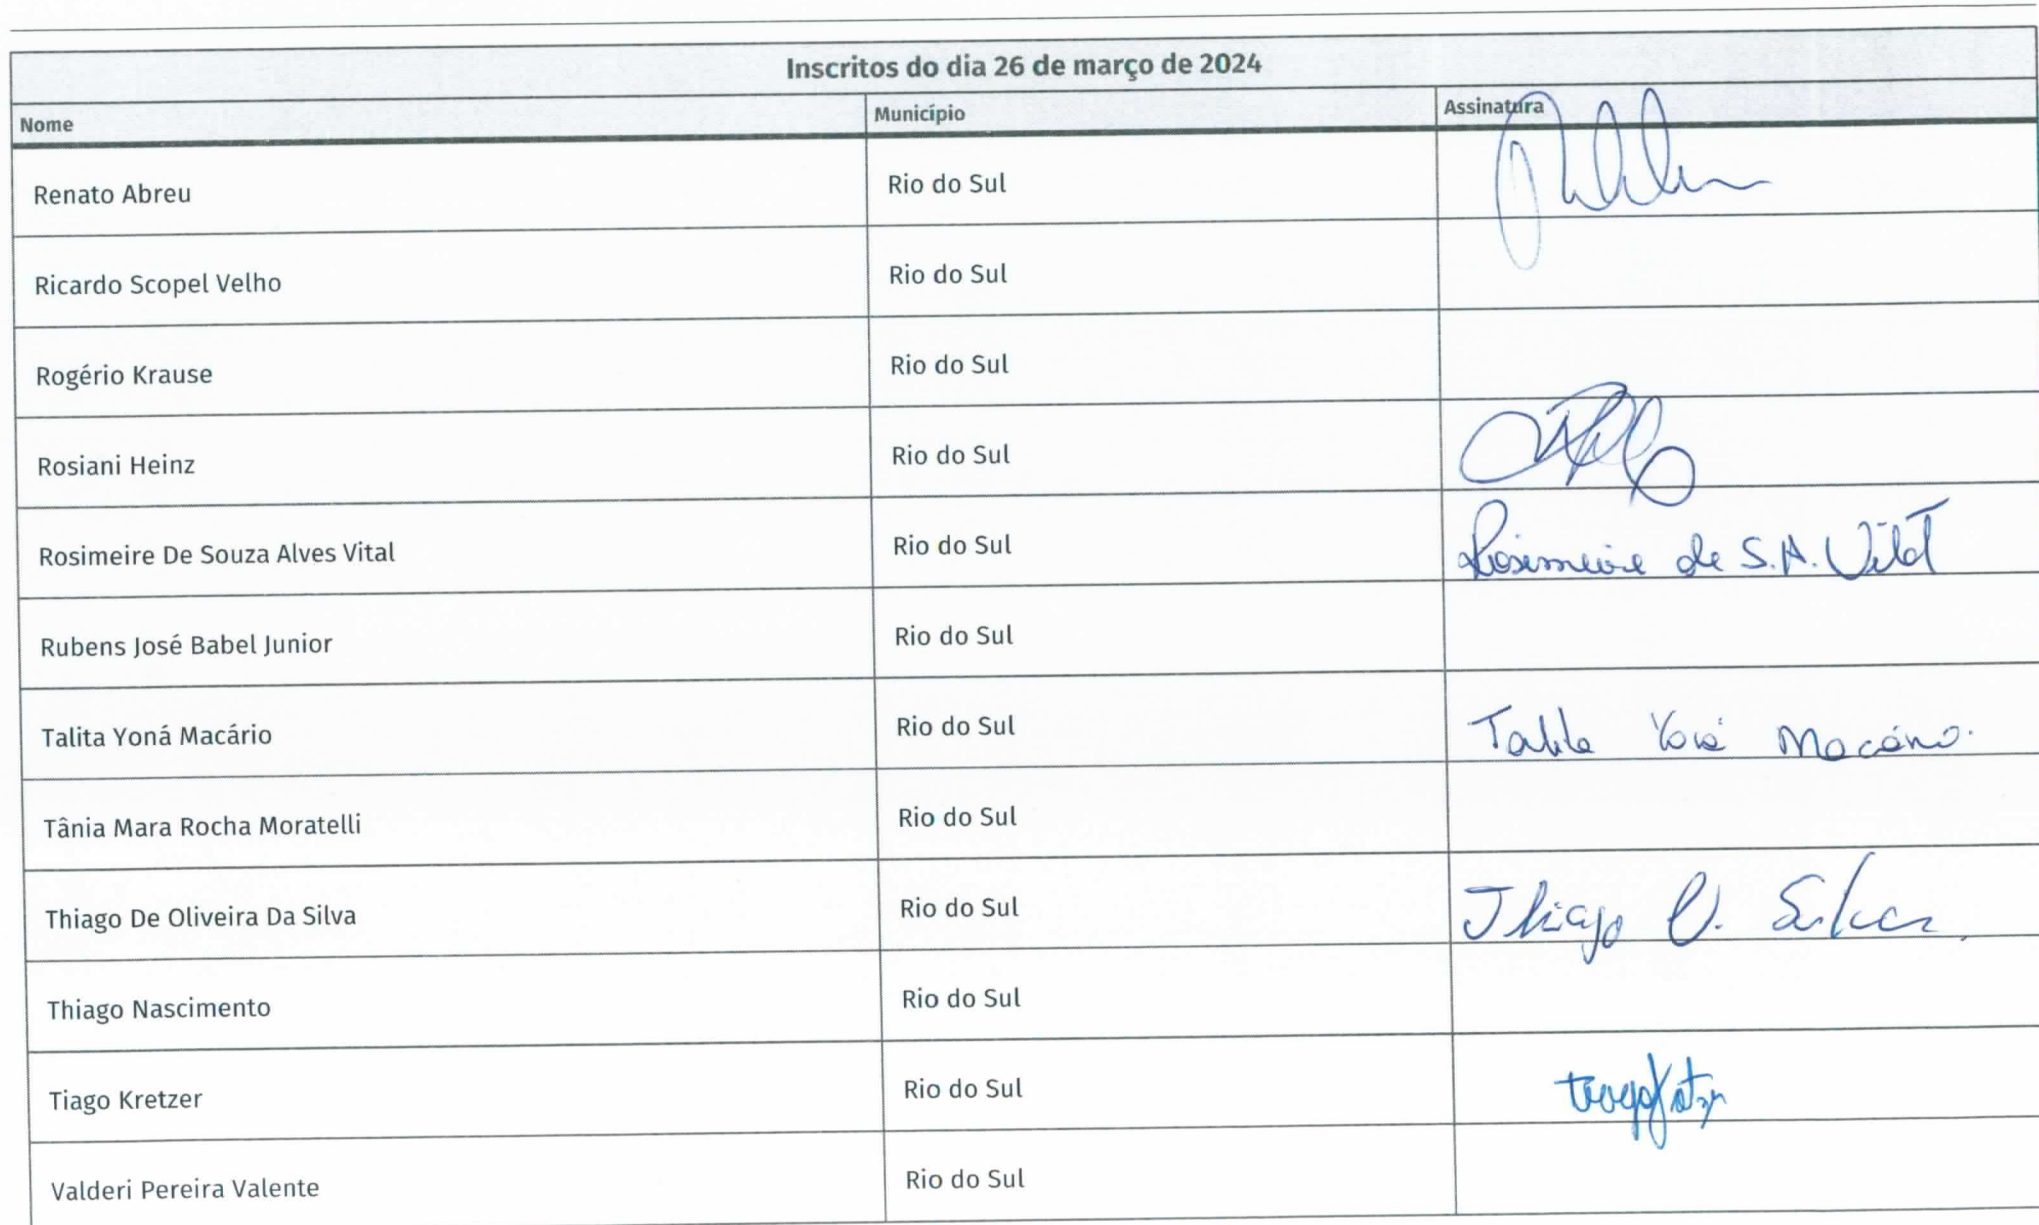 Inscritos do dia 26 de março de 2024
Nome Município Assinatura
Renato Abreu Rio do Sul
Ricardo Scopel Velho Rio do Sul
Rogério Krause Rio do Sul
Rosiani Heinz Rio do Sul
Rosimeire De Souza Alves Vital Rio do Sul Rosimeire de S.A. Vital
Rubens José Babel Junior Rio do Sul
Talita Yoná Macário Rio do Sul Talita Yoná Macário.
Tânia Mara Rocha Moratelli Rio do Sul
Thiago De Oliveira Da Silva Rio do Sul Thiago O. Silva
Thiago Nascimento Rio do Sul
Tiago Kretzer Rio do Sul
Valderi Pereira Valente Rio do Sul